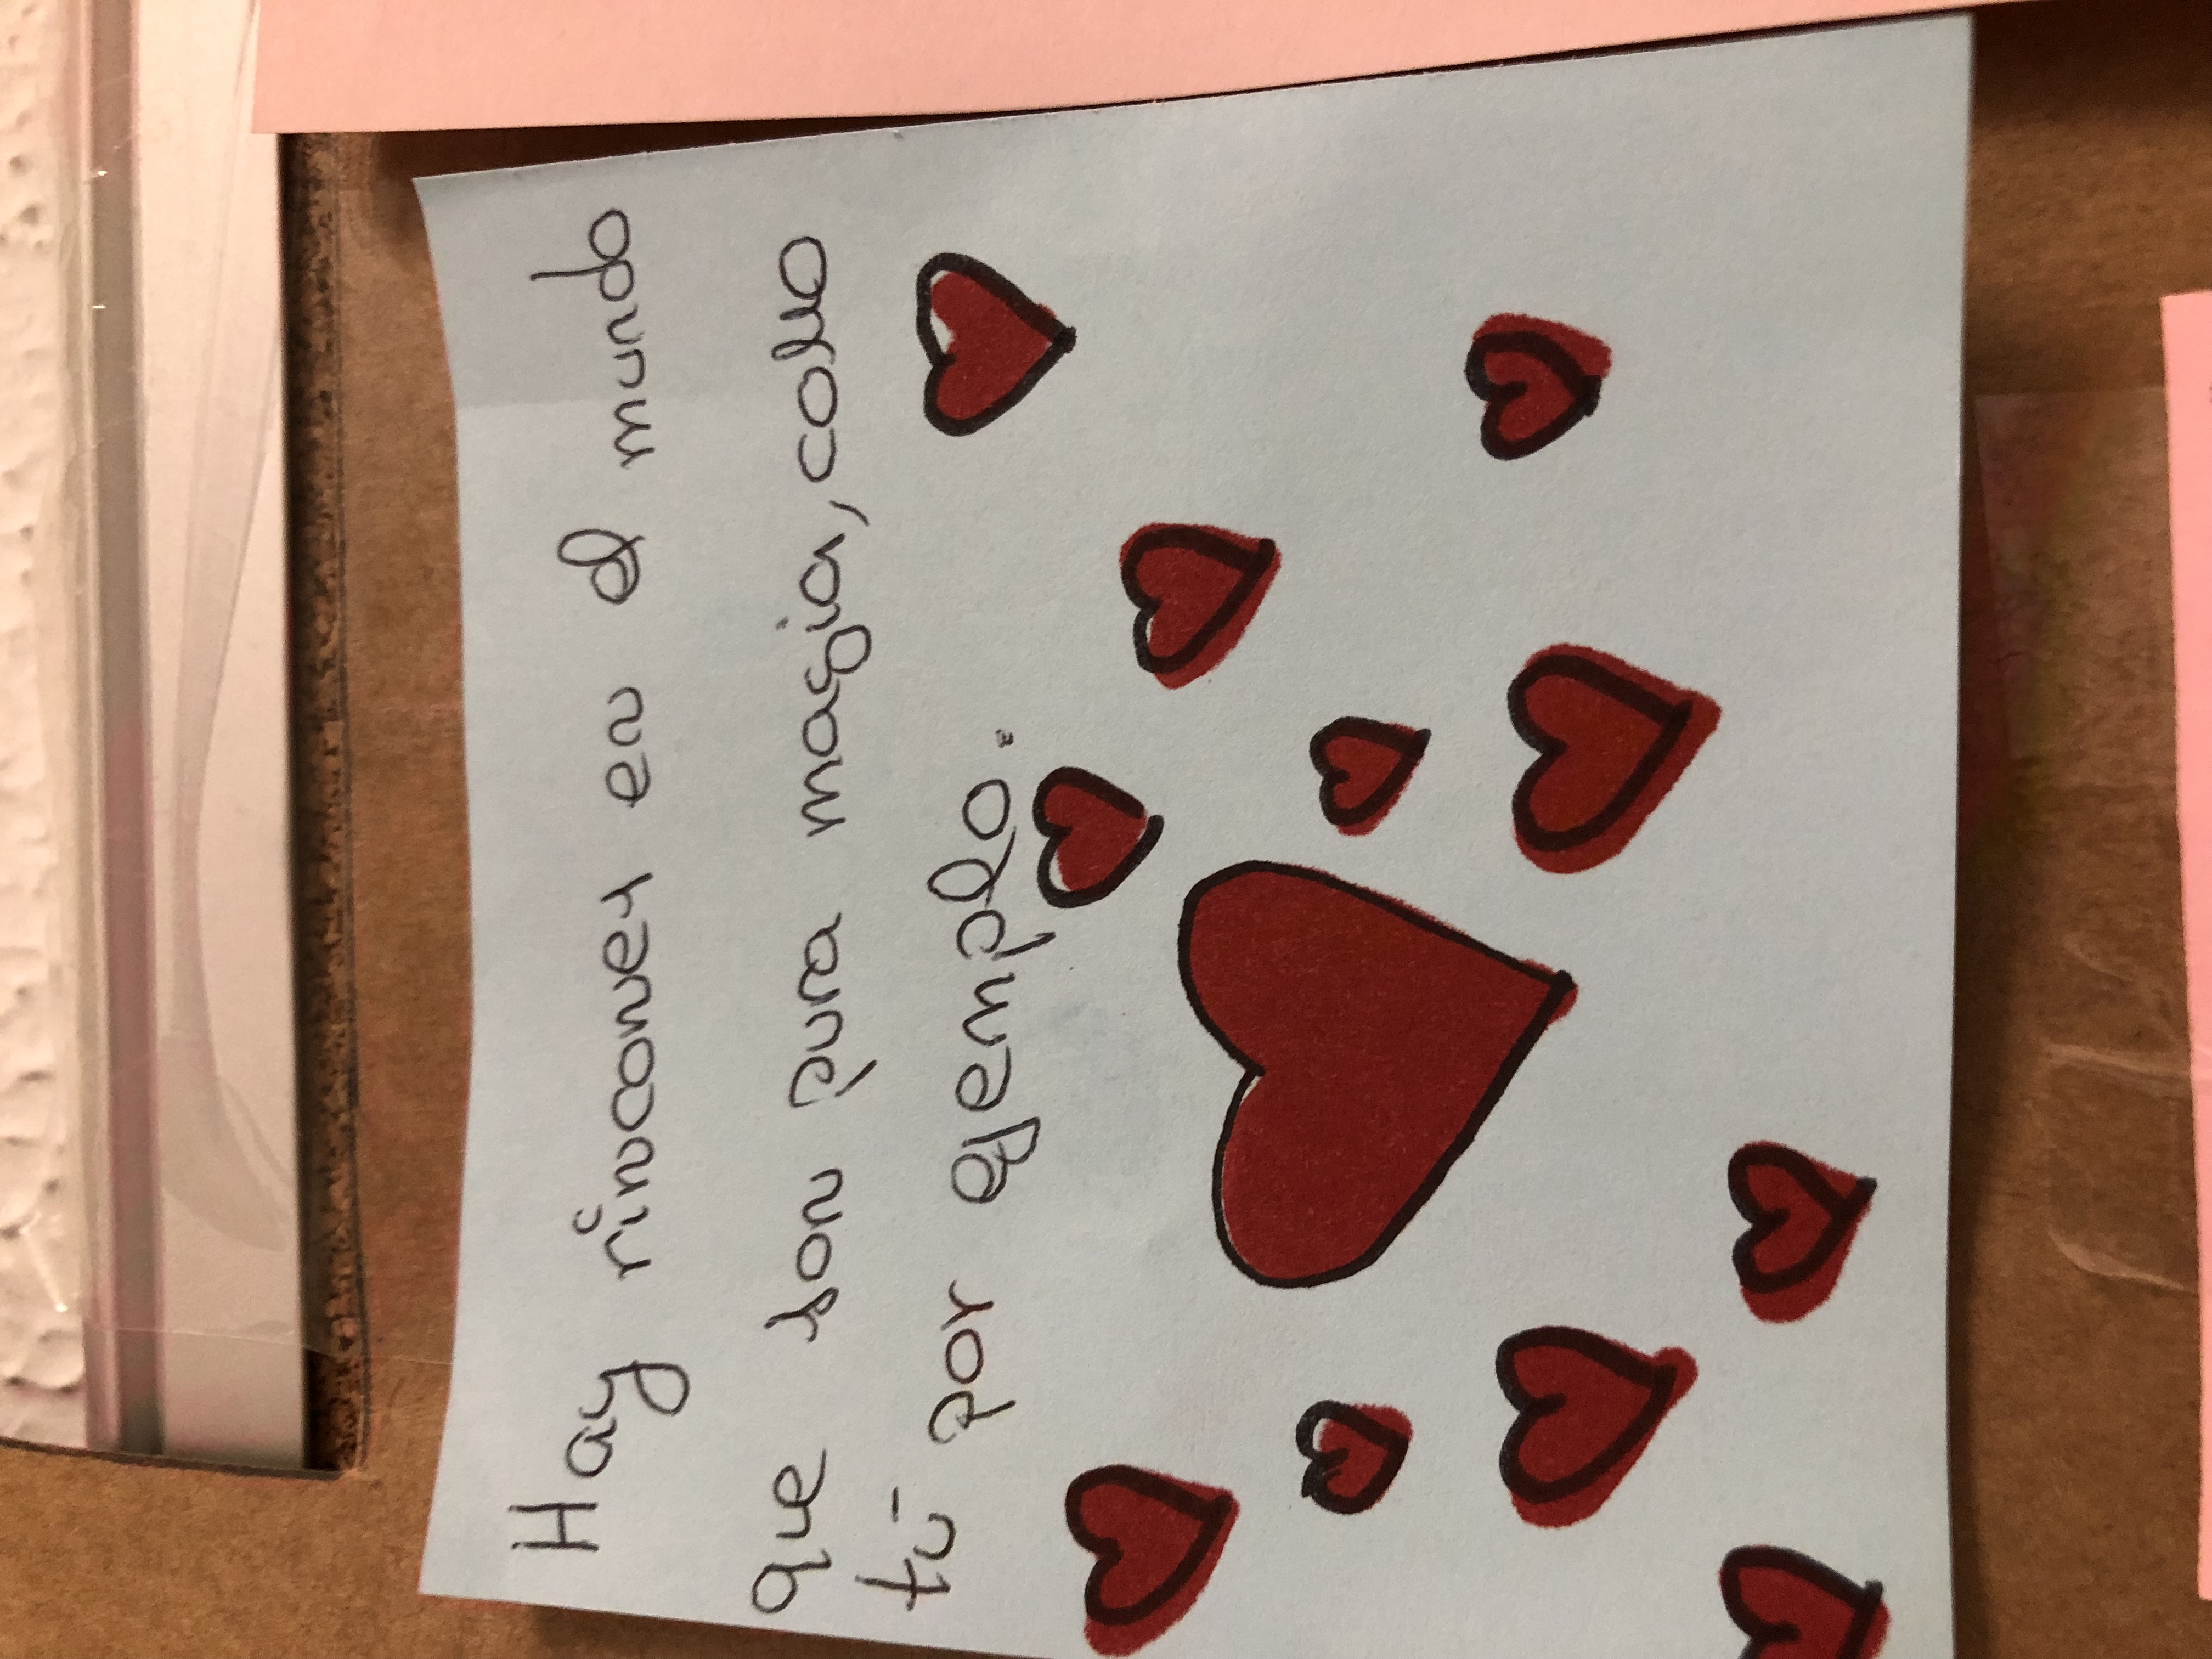 Hay rincones en el mundo
que son pura magia, como
tú por ejemplo.